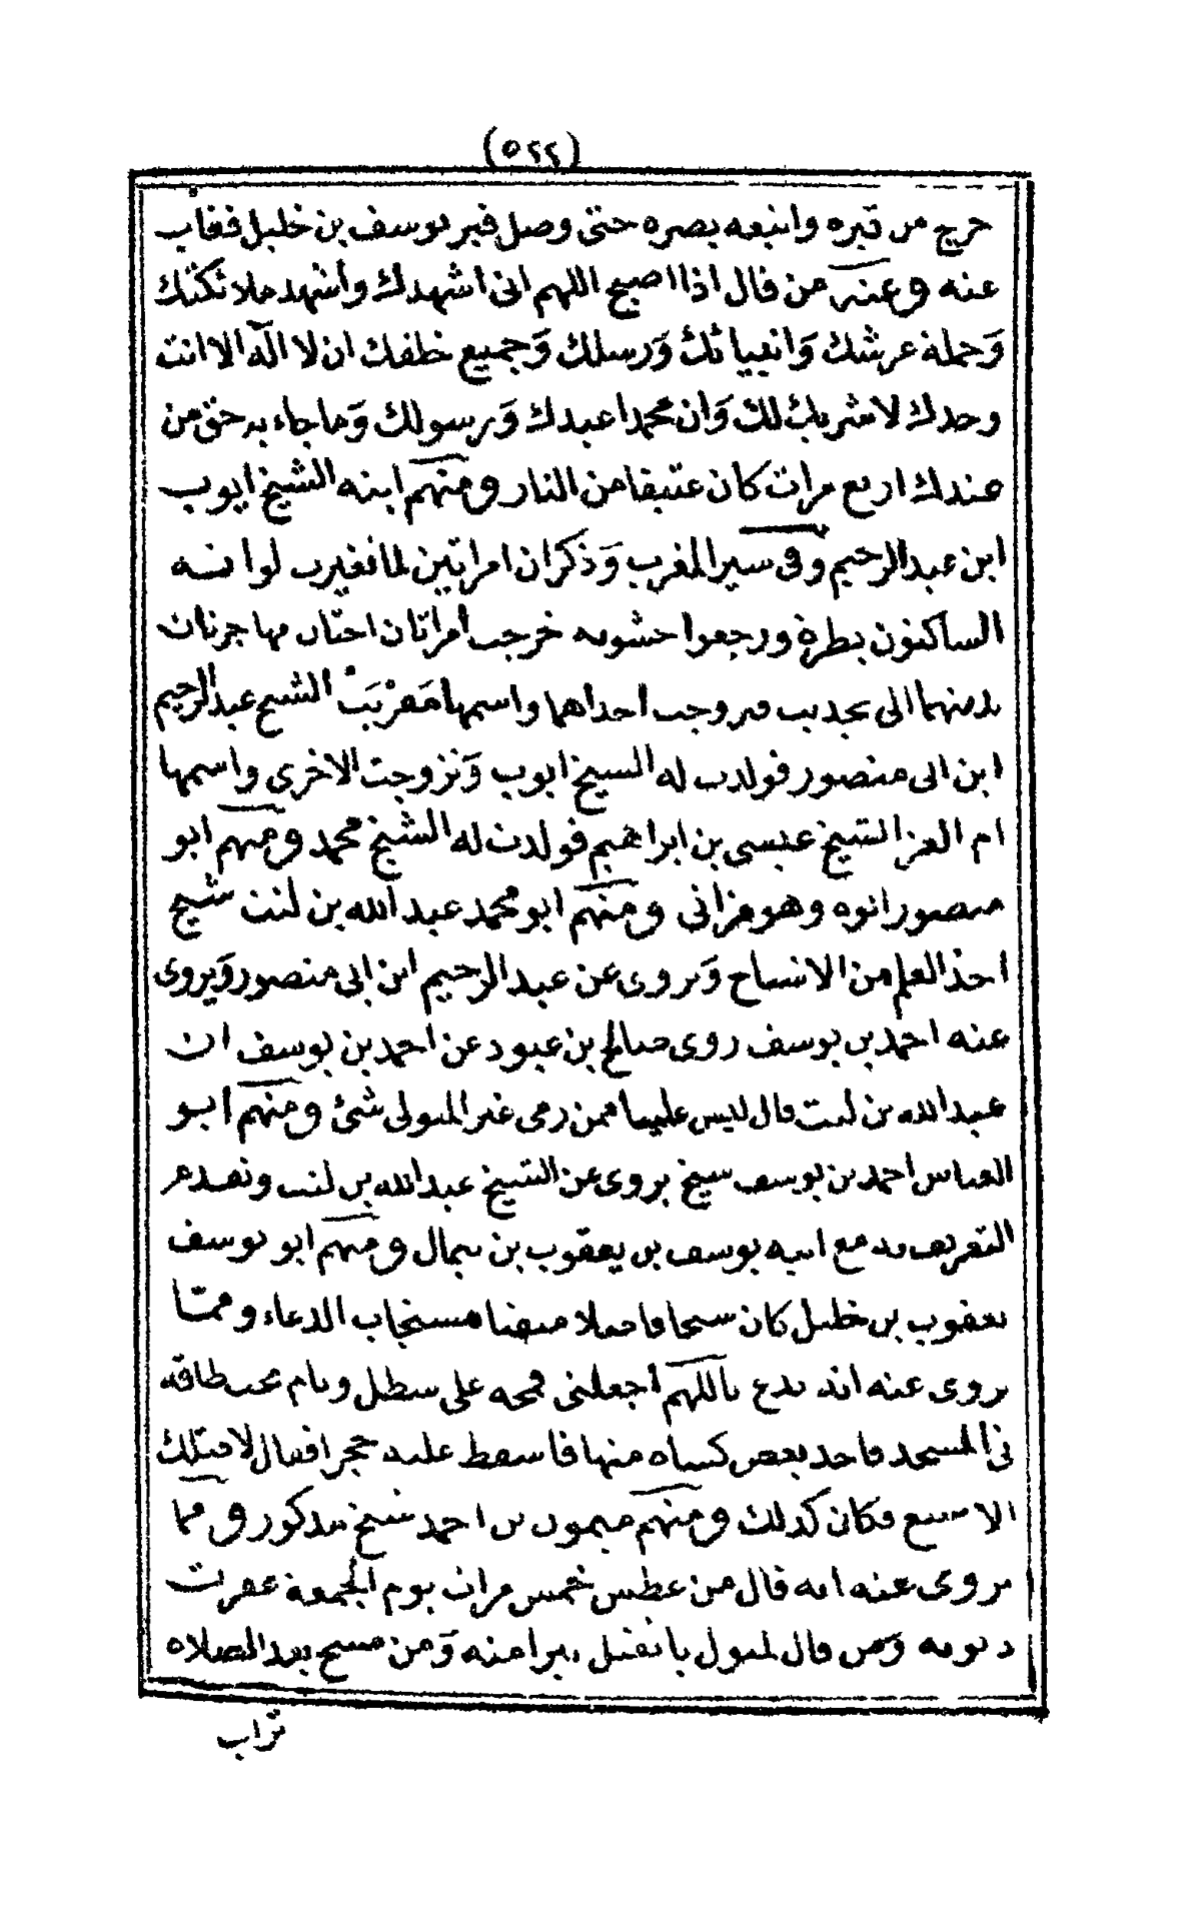 (٥٢٢)
خرج من قبره واتبعه بصره حتى وصل قبر يوسف بن خليل فغاب
عنه وعنه من قال اذا اصبح اللهم انى اشهدك وأشهد ملائكتك
وَحملة عرشك وَانبيائك وَرسلك وَجميع خلقك ان لا اله الا انت
وحدك لا شريك لك وَان محمدا عبدك وَرسولك وَما جاء به حق من
عندك اربع مرات كان عتيقا من النار ومنهم ابنه الشيخ ايوب
ابن عبدالرحيم وفى سير المغرب وَذكر ان امراتين لما
الساكنون ورجعوا خرجت امراتان اختان
الى احداهما واسمها الشيخ عبدالرحيم
ابن ابى منصور فولدت له الشيخ ايوب وَتزوجت الاخرى واسمها
ام العز الشيخ عيسى بن ابراهيم فولدت له الشيخ محمد ومنهم ابو
منصور وهو مزاتى ومنهم ابو محمد عبدالله بن لنت شيخ
اخذ العلم من الاشياخ وَيروى عن عبدالرحيم ابن ابى منصور وَيروى
عنه احمد بن يوسف روى صالح بن عبود عن احمد بن يوسف ان
عبدالله بن لنت قال ليس علينا ممن رمى غير المتولى شئ ومنهم ابو
العباس احمد بن يوسف شيخ يروى عن الشيخ عبدالله بن لنت وتقدم
التعريف به مع ابيه يوسف بن يعقوب بن ومنهم ابو يوسف
يعقوب بن خليل كان شيخا فاضلا مستجاب الدعاء وممّا
يروى عنه انه اللهم اجعلنى على ونام تحت طاقة
فى المسجد فاخذ بعض كساه منها فاسقط عليه حجرا فقال لا
فكان كذلك ومنهم ميمون بن احمد شيخ مذكور ومما
يروى عنه انه قال من عطس خمس مرات يوم الجمعة غفرت
ذنوبه وَمن قال وَمن مسح بعد الصلاه
تراب